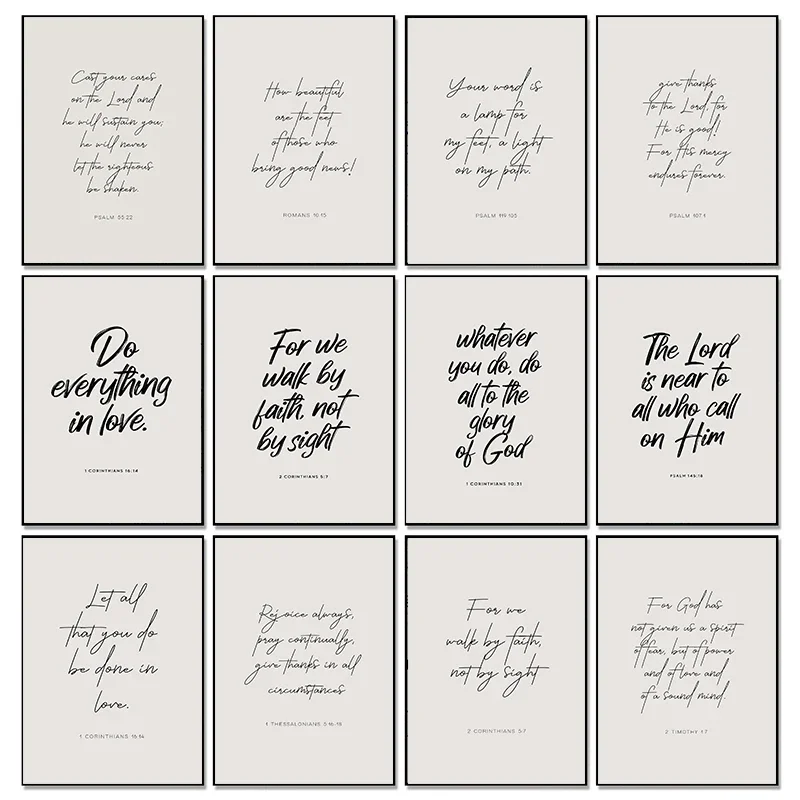 Cast your cares
on the Lord and
he will sustain you;
he will never
let the righteous
be shaken.
PSALM 55:22
How beautiful
are the feet
of those who
bring good news!
ROMANS 10:15
Your word is
a lamp for
my feet, a light
on my path.
PSALM 119:105
give thanks
to the Lord, for
He is good!
For His mercy
endures forever.
PSALM 107:1
Do
everything
in love.
1 CORINTHIANS 16:14
For we
walk by
faith, not
by sight
2 CORINTHIANS 5:7
whatever
you do, do
all to the
glory
of God
1 CORINTHIANS 10:31
The Lord
is near to
all who call
on Him
PSALM 145:18
Let all
that you do
be done in
love.
1 CORINTHIANS 16:14
Rejoice always,
pray continually,
give thanks in all
circumstances
1 THESSALONIANS 5:16-18
For we
walk by faith,
not by sight
2 CORINTHIANS 5:7
For God has
not given us a spirit
of fear, but of power
and of love and
of a sound mind.
2 TIMOTHY 1:7